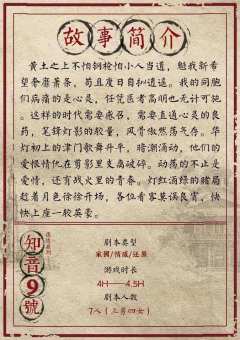 故事简介
黄土之上不怕钢枪怕小人当道，魁我新希
望奢靡萧条，苟且度日自拟逍遥。我的同胞
们病痛的是心灵，任凭医者高明也无计可施
。这样的时代需要感召，需要直通心灵的良
药，笔锋灯影的胶量，风骨傲然荡气存。华
灯初上的津门歌舞升平，暗潮涌动，他们的
爱恨情仇在剪影里支离破碎。动荡的不止是
爱情，还有战火里的青春。灯红酒绿的赌局
趁着月色徐徐开场，各位看客莫误良宵，快
快上座一较英豪。
知音9號
剧本类型
家国/情感/还原
游戏时长
4H—4.5H
剧本人数
7人（三男四女）